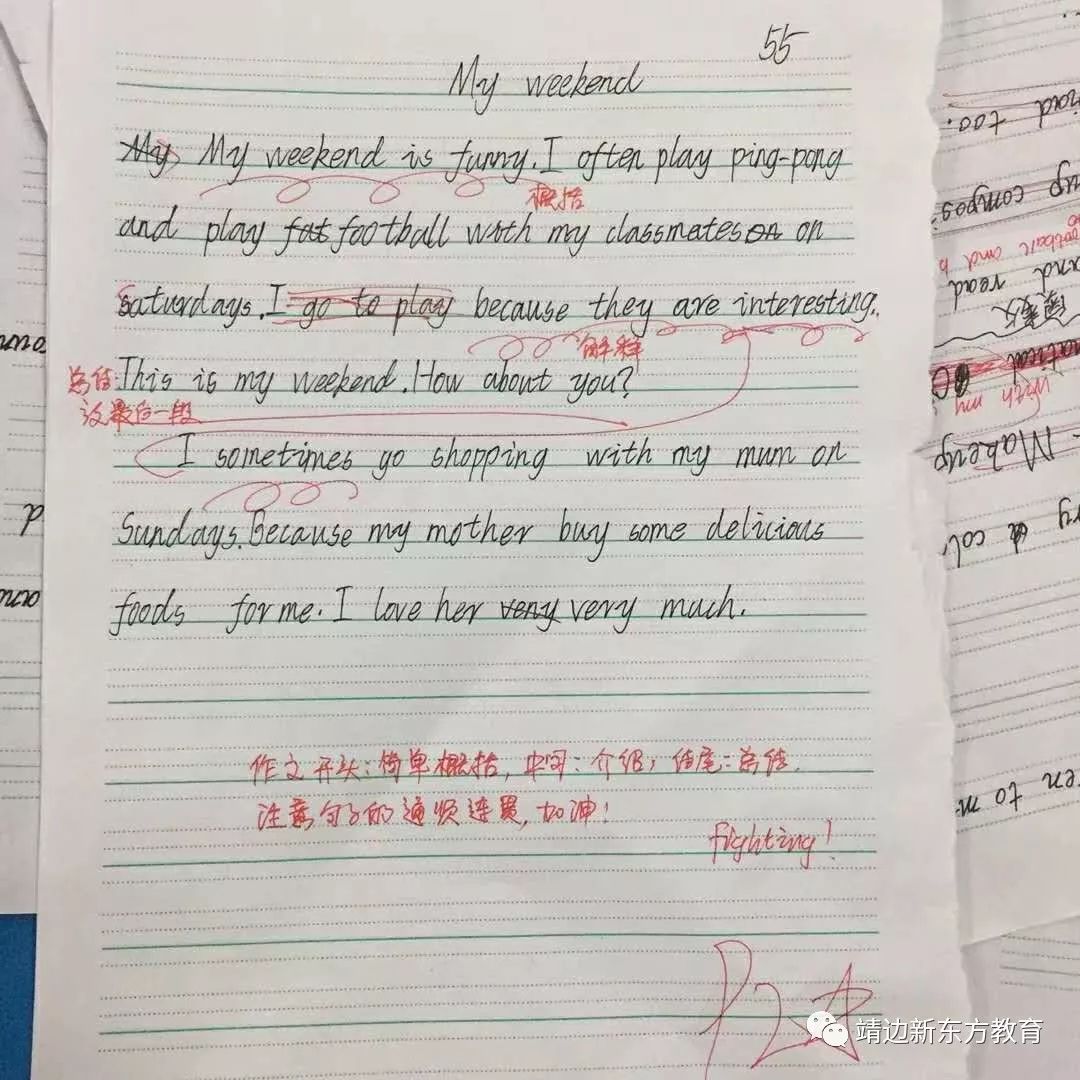 55
My weekend
My My weekend is funny. I often play ping-pong
概括
and play fat football with my classmates on on
Saturdays. I go to play because they are interesting.
解释
总结 This is my weekend. How about you?
没最后一段
I sometimes go shopping with my mum on
Sundays. Because my mother buy some delicious
foods for me. I love her veny very much.
作文开头：简单概括，中间：介绍，结尾：总结.
注意句子的通顺连贯，加油！
fighting!
靖边新东方教育
too.
up compos
football and h
and read
with my
Makeup
col
ten to m